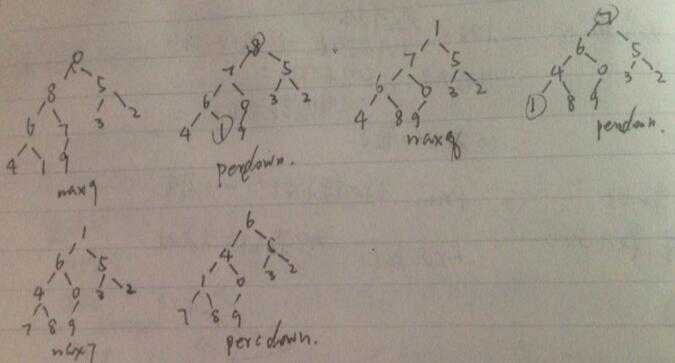 0
8 5
6 7 3 2
4 1 9
max9
8
7 5
6 0 3 2
4 1 9
perdown.
1
7 5
6 0 3 2
4 8 9
max8
7
6 5
4 0 3 2
1 8 9
perdown.
1
6 5
4 0 3 2
7 8 9
max7
6
4 5
1 0 3 2
7 8 9
percdown.